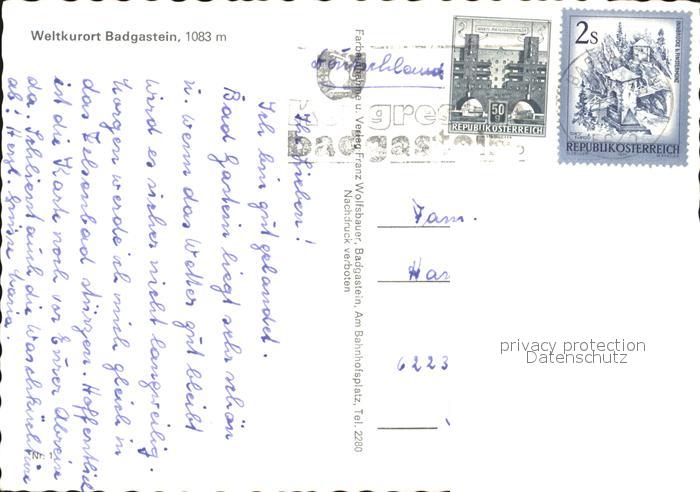 Weltkurort Badgastein, 1083 m
Ihr Lieben!
Ich bin gut gelandet.
Bad Gastein liegt sehr schön
u. wenn das Wetter gut bleibt
wird es sicher nicht langweilig.
Morgen werde ich mich gleich in
das Felsenbad stürzen. Hoffentlich
ist die Karte noch vor Eurer Abreise
da. Schliesst auch die Waschküchtüre
ab! Herzl. Grüsse Maria.
Nr. 1
Farbaufnahme u. Verlag Franz Wolfsbauer, Badgastein, Am Bahnhofsplatz, Tel. 2280
Nachdruck verboten
Deutschland
badgastein
WIEN-HEILIGENSTADT
50
REPUBLIK ÖSTERREICH
2S
REPUBLIK ÖSTERREICH
Fam.
6223
privacy protection
Datenschutz